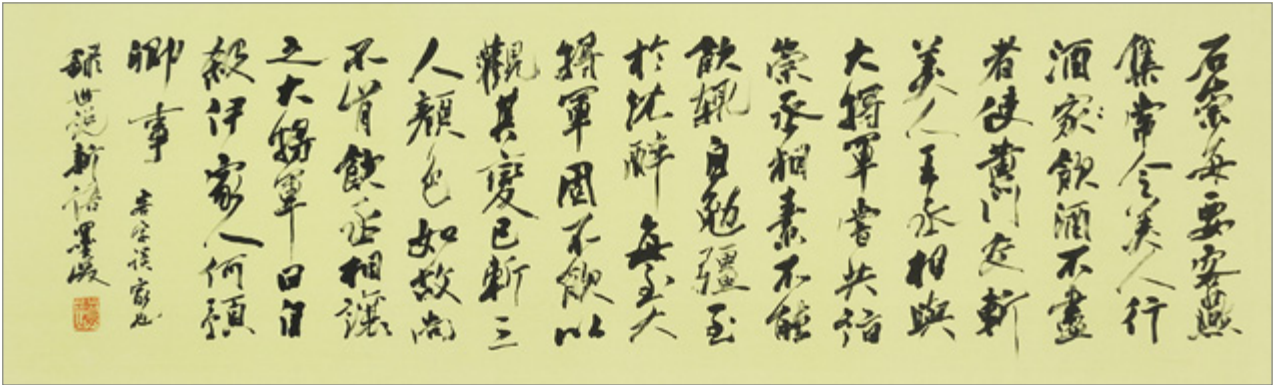 石崇每要客燕
集常令美人行
酒家飲酒不盡
者使黃門交斬
美人王丞相與
大將軍嘗共詣
崇丞相素不能
飲輒自勉彊至
於沈醉每至大
將軍固不飲以
觀其變已斬三
人顏色如故尚
不肯飲丞相讓
之大將軍曰自
殺伊家人何預
卿事 客字誤家也
録世說新語墨